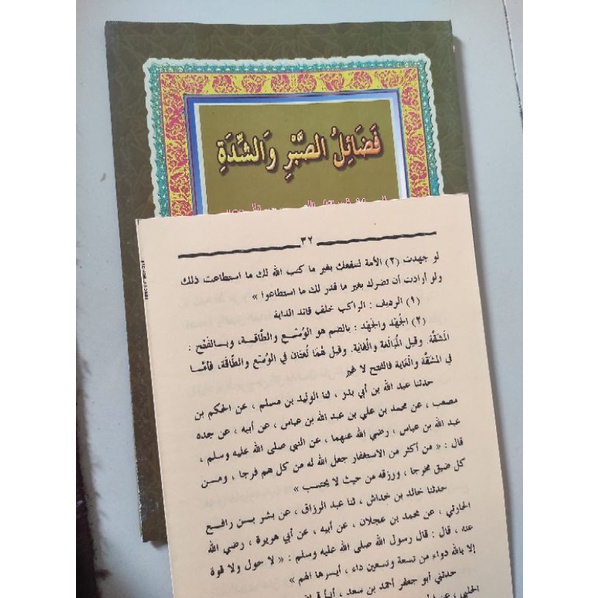 فَضَائِلُ الصَّبْرِ وَالشِّدَةِ
٣٢
لو جهدت (٢) الأمة لتنفعك بغير ما كتب الله لك ما استطاعت ذلك
ولو أرادت أن تضرك بغير ما قدر لك ما استطاعوا »
(١) الرديف : الراكب خلف قائد الدابة
(٢) الجَهْد والجُهْد : بالضم هو الوُسْع والطَّاقة ، وبالفتح :
المَشَقَّة. وقيل المُبَالَغة والْغَاية. وقيل هُمَا لُغتَان في الوُسْع والطَّاقَة، فأمَّا
في المشقَّة والْغَاية فالفتح لا غير
حدثنا عبد الله بن أبي بدر ، لنا الوليد بن مسلم ، عن الحكم بن
مصعب ، عن محمد بن علي بن عبد الله بن عباس ، عن أبيه ، عن جده
عبد الله بن عباس ، رضي الله عنهما ، عن النبي صلى الله عليه وسلم ،
قال : « من أكثر من الاستغفار جعل الله له من كل هم فرجا ، ومن
كل ضيق مخرجا ، ورزقه من حيث لا يحتسب »
حدثنا خالد بن خداش ، لنا عبد الرزاق ، عن بشر بن رافع
الحارثي ، عن محمد بن عجلان ، عن أبيه ، عن أبي هريرة ، رضي الله
عنه ، قال : قال رسول الله صلى الله عليه وسلم : « لا حول ولا قوة
إلا بالله دواء من تسعة وتسعين داء ، أيسرها الهم »
حدثني أبو جعفر أحمد بن سعد ، أنبأ
الحلبي ، عن